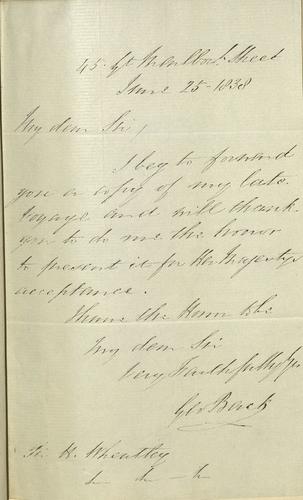 45 Gt Marlbro' Street
June 25 - 1838
My dear Sir,
I beg to forward
you a copy of my late
Voyage and will thank
you to do me the honor
to present it for Her Majesty's
acceptance.
I have the Honr to be
My dear Sir
Very Faithfully Yrs
Geo Back
Sir H. Wheatley